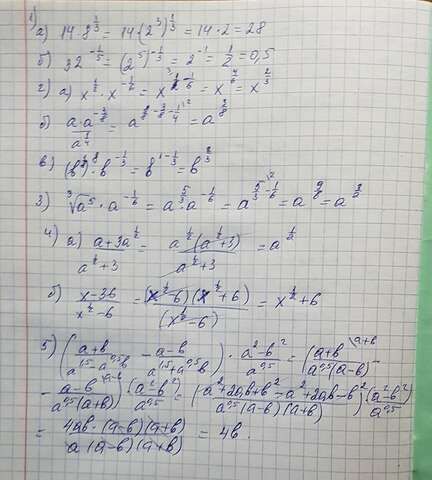 1) а) 14·8^{1/3} = 14·(2^3)^{1/3} = 14·2 = 28
б) 32^{-1/5} = (2^5)^{-1/5} = 2^{-1} = 1/2 = 0,5
2) а) x^{1/2}·x^{-1/2} = = x^{4/6} = x^{2/3}
б) a·a^{-3/8} / a^{1/4} = a^{8/8-3/8-1/4} = a^{3/8}
в) ·b^{-1/3} = b^{1-1/3} = b^{2/3}
3) ∛a^5·a^{-1/6} = a^{5/3}·a^{-1/6} = a^{5/3-1/6} = a^{9/6} = a^{3/2}
4) а) a+3a^{1/2} / a^{1/2}+3 = a^{1/2}(a^{1/2}+3) / a^{1/2}+3 = a^{1/2}
б) x-36 / x^{1/2}-6 = (x^{1/2}-6)(x^{1/2}+6) / (x^{1/2}-6) = x^{1/2}+6
5) (a+b / a^{1,5}-a^{0,5}b - a-b / a^{1,5}+a^{0,5}b)·a²-b² / a^{0,5} = (a+b \a+b / a^{0,5}(a-b) -
- a-b \a-b / a^{0,5}(a+b))(a²-b² / a^{0,5}) = (a²+2ab+b²-a²+2ab-b² / a^{0,5}(a-b)(a+b))(a²-b²) / a^{0,5}
= 4ab·(a-b)(a+b) / a(a-b)(a+b) = 4b.